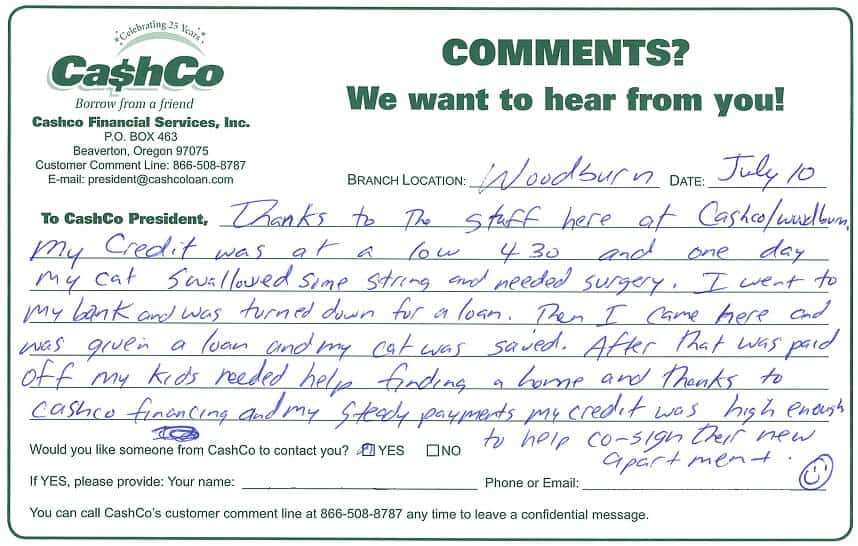 Celebrating 25 Years
Ca$hCo
Borrow from a friend
Cashco Financial Services, Inc.
P.O. BOX 463
Beaverton, Oregon 97075
Customer Comment Line: 866-508-8787
E-mail: president@cashcoloan.com
COMMENTS?
We want to hear from you!
BRANCH LOCATION: Woodburn DATE: July 10
To CashCo President, Thanks to The staff here at Cashco/woodburn.
my Credit was at a low 430 and one day
my cat swallowed some string and needed surgery. I went to
my bank and was turned down for a loan. Then I came here and
was given a loan and my cat was saved. After that was paid
off my kids needed help finding a home and thanks to
cashco financing and my steady payments my credit was high enough
to help co-sign their new
apartment.
Would you like someone from CashCo to contact you? YES NO
If YES, please provide: Your name: Phone or Email:
You can call CashCo's customer comment line at 866-508-8787 any time to leave a confidential message.